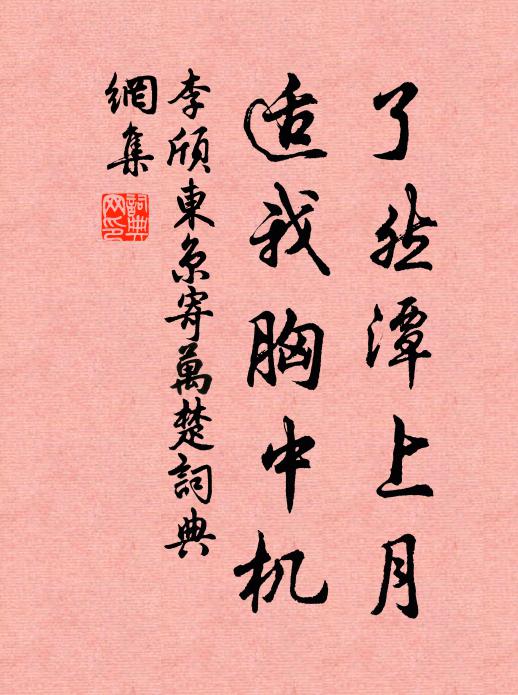 了然潭上月
适我胸中机
李頎東京寄萬楚詞典
網集
詞典網印